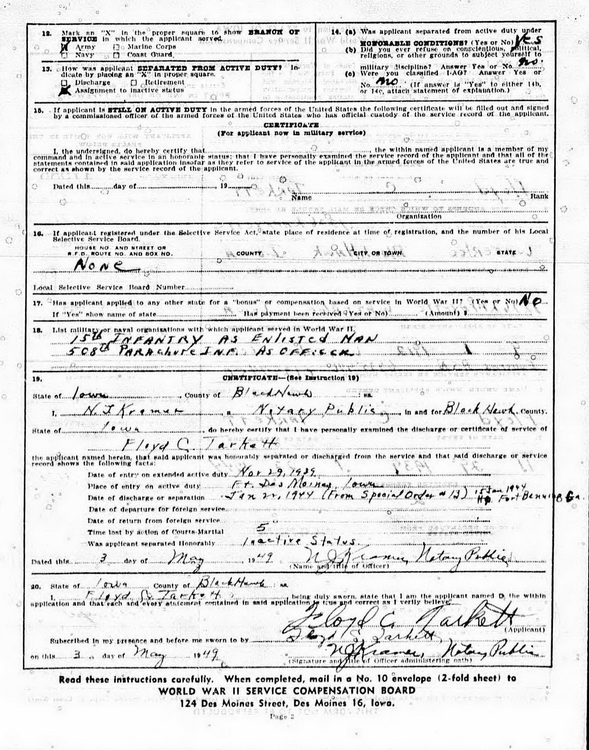 12. Mark an "X" in the proper square to show BRANCH OF SERVICE in which the applicant served.
Army Marine Corps
Navy Coast Guard
13. How was applicant SEPARATED FROM ACTIVE DUTY? Indicate by placing an "X" in proper square.
Discharge Retirement
Assignment to inactive status
14. (a) Was applicant separated from active duty under HONORABLE CONDITIONS? (Yes or No) Yes
(b) Did you ever refuse on conscientious, political, religious, or other grounds to subject yourself to military discipline? (Answer Yes or No) No.
(c) Were you classified 1-AO? Answer Yes or No. No (If answer is "Yes" to either 14b, or 14c, attach statement of explanation.)
15. If applicant is STILL ON ACTIVE DUTY in the armed forces of the United States the following certificate will be filled out and signed
by a commissioned officer of the armed forces of the United States who has official custody of the service record of the applicant.
CERTIFICATE
(For applicant now in military service)
I, the undersigned, do hereby certify that the within named applicant is a member of my
command and in active service in an honorable status; that I have personally examined the service record of the applicant and that all of the
statements contained in said application insofar as they refer to service of the applicant in the armed forces of the United States are true and
correct as shown by the service record of the applicant.
Dated this day of 19
Name Rank
Organization
16. If applicant registered under the Selective Service Act, state place of residence at time of registration, and the number of his Local
Selective Service Board.
HOUSE NO. AND STREET OR
R.F.D. ROUTE NO. AND BOX NO. COUNTY CITY OR TOWN STATE
None
Local Selective Service Board Number
17. Has applicant applied to any other state for a "bonus" or compensation based on service in World War II? (Yes or No) No
If "Yes" show name of state Has payment been received (Yes or No) (Amount) $
18. List military or naval organizations with which applicant served in World War II.
15th INFANTRY AS ENLISTED MAN
508th PARACHUTE INF. AS OFFICER
19. CERTIFICATE—(See Instruction 19)
State of Iowa, County of Black Hawk, ss:
I, N J Kramer, a Notary Public, in and for Black Hawk County,
State of Iowa do hereby certify that I have personally examined the discharge or certificate of service of
Floyd C. Tarkett
the applicant named herein, that said applicant was honorably separated or discharged from the service and that said discharge or service
record shows the following facts:
Date of entry on extended active duty Nov 29, 1939
Place of entry on active duty Ft. Des Moines, Iowa
Date of discharge or separation Jan 22, 1944 (From Special Order #13) 15 Jan 1944 HQ. Fort Benning Ga.
Date of departure for foreign service
Date of return from foreign service
Time lost by action of Courts-Martial 5
Was applicant separated Honorably Inactive Status
Dated this 3 day of May 1949 N J Kramer, Notary Public
(Name and Title of Officer)
20. State of Iowa County of Black Hawk ss
I, Floyd C. Tarkett being duly sworn, state that I am the applicant named in the within
application and that each and every statement contained in said application is true and correct as I verily believe.
Floyd C. Tarkett
(Applicant)
Floyd C. Tarkett
Subscribed in my presence and before me sworn to by
on this 3 day of May 1949 N J Kramer, Notary Public
(Signature and Title of Officer administering oath)
Read these instructions carefully. When completed, mail in a No. 10 envelope (2-fold sheet) to
WORLD WAR II SERVICE COMPENSATION BOARD
124 Des Moines Street, Des Moines 16, Iowa.
Page 2